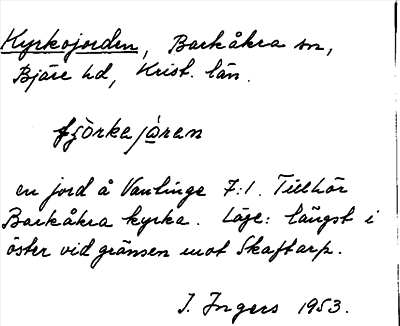 Kyrkojorden, Barkåkra sn,
Bjäre hd, Krist. län.
en jord å Vanlinge 7:1. Tillhör
Barkåkra kyrka. Läge: längst i
öster vid gränsen mot Skaftarp.
I. Ingers 1953.